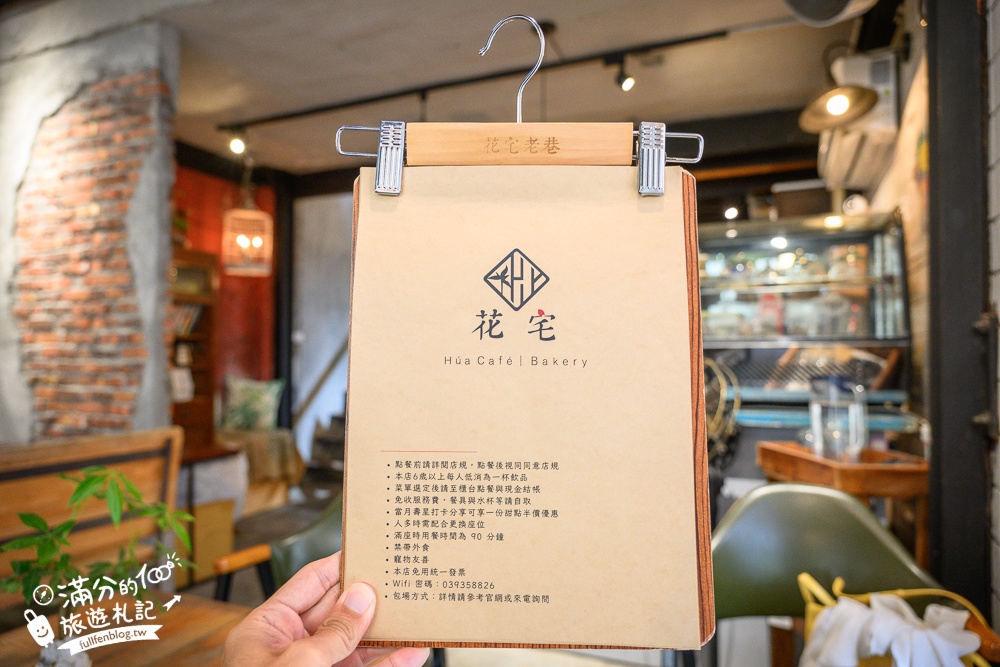 花宅老巷
花宅
Húa Café | Bakery
• 點餐前請詳閱店規，點餐後視同同意店規
• 本店6歲以上每人低消為一杯飲品
• 菜單選定後請至櫃台點餐與現金結帳
• 免收服務費，餐具與水杯等請自取
• 當月壽星打卡分享可享一份甜點半價優惠
• 人多時需配合更換座位
• 滿座時用餐時間為 90 分鐘
• 禁帶外食
• 寵物友善
• 本店免用統一發票
• Wifi 密碼：039358826
• 包場方式：詳情請參考官網或來電詢問
滿分的100
旅遊札記
fullfenblog.tw